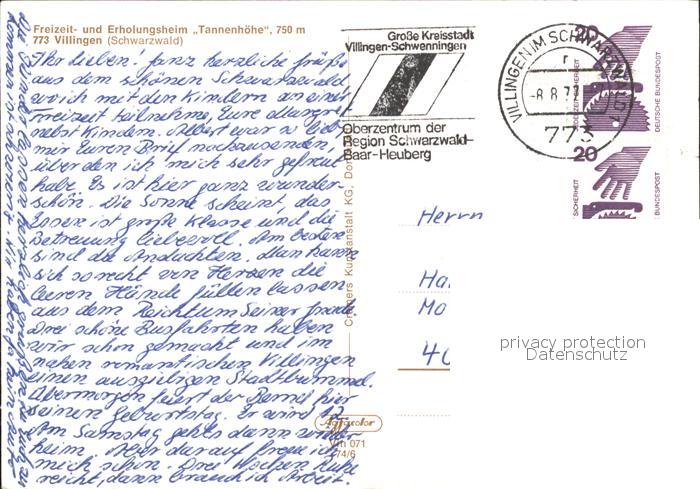 Freizeit- und Erholungsheim „Tannenhöhe", 750 m
773 Villingen (Schwarzwald)
Ihr Lieben! Ganz herzliche Grüße
aus dem schönen Schwarzwald,
wo ich mit den Kindern an einer
Freizeit teilnehme, Eure
nebst Kindern. Albert war so lieb
mir Euren Brief nachzusenden,
über den ich mich sehr gefreut
habe. Es ist hier ganz wunder-
schön. Die Sonne scheint, das
Essen ist große Klasse und die
Betreuung liebevoll. Am besten
sind die Andachten. Man kann
sich so recht von Herzen die
leeren Hände füllen lassen
aus dem Reichtum Seiner Gnade.
Drei schöne Busfahrten haben
wir schon gemacht und im
nahen romantischen Villingen
einen ausgiebigen Stadtbummel.
Übermorgen feiert der Bernd hier
seinen Geburtstag. Er wird 12.
Am Samstag gehts dann wieder
heim. Aber darauf freue ich
mich schon. Drei Wochen Ruhe
reicht, dann brauch ich Arbeit.
Die Kinder lassen herzlich grüßen
Große Kreisstadt
Villingen-Schwenningen
Oberzentrum der
Region Schwarzwald-
Baar-Heuberg
VILLINGEN IM SCHWARZWALD 1
r
-8.8.77
773
20
SICHERHEIT
DEUTSCHE BUNDESPOST
20
SICHERHEIT
BUNDESPOST
Herrn
Ha
Mo
40
privacy protection
Datenschutz
Cramers Kunstanstalt KG, Dor
Agfacolor
Vm 071
274/6